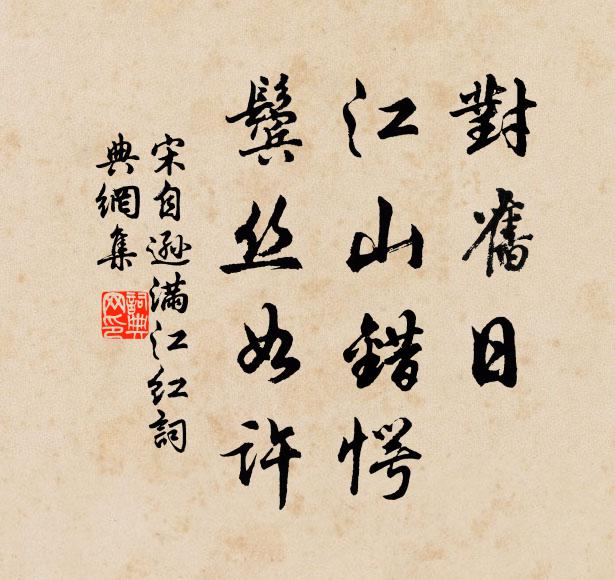 對舊日
江山錯愕
鬢丝如许
宋自遜滿江红詞
典網集
詞典网印